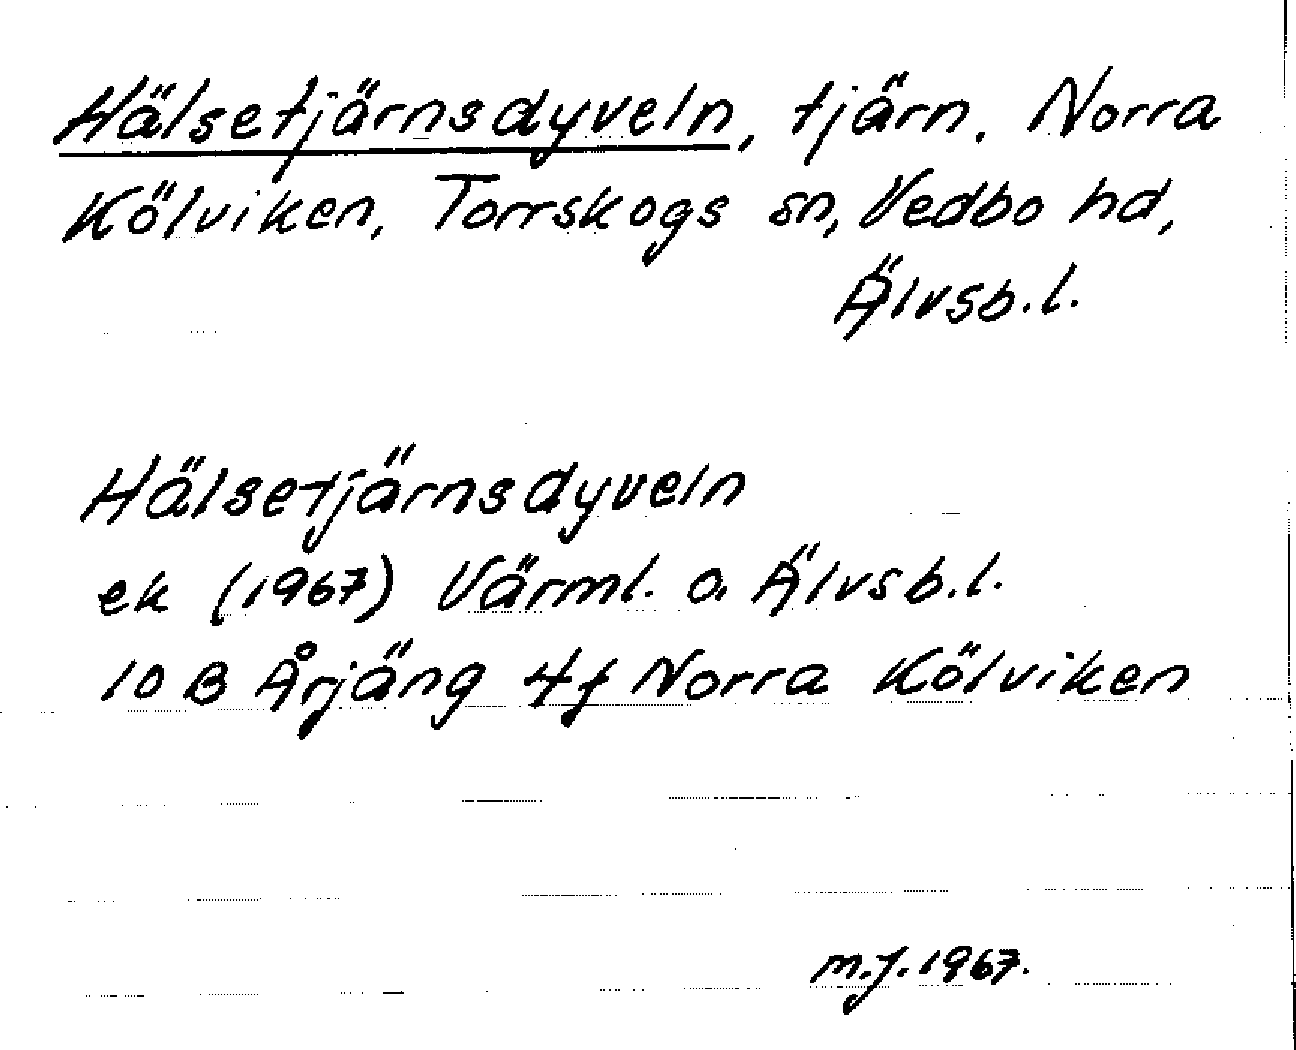 Hälsetjärnsdyveln, tjärn. Norra
Kölviken, Torrskogs sn, Vedbo hd,
Älvsb.l.
Hälsetjärnsdyveln
ek (1967) Värml. o. Älvsb.l.
10 B Årjäng 4f Norra Kölviken
m.J. 1967.